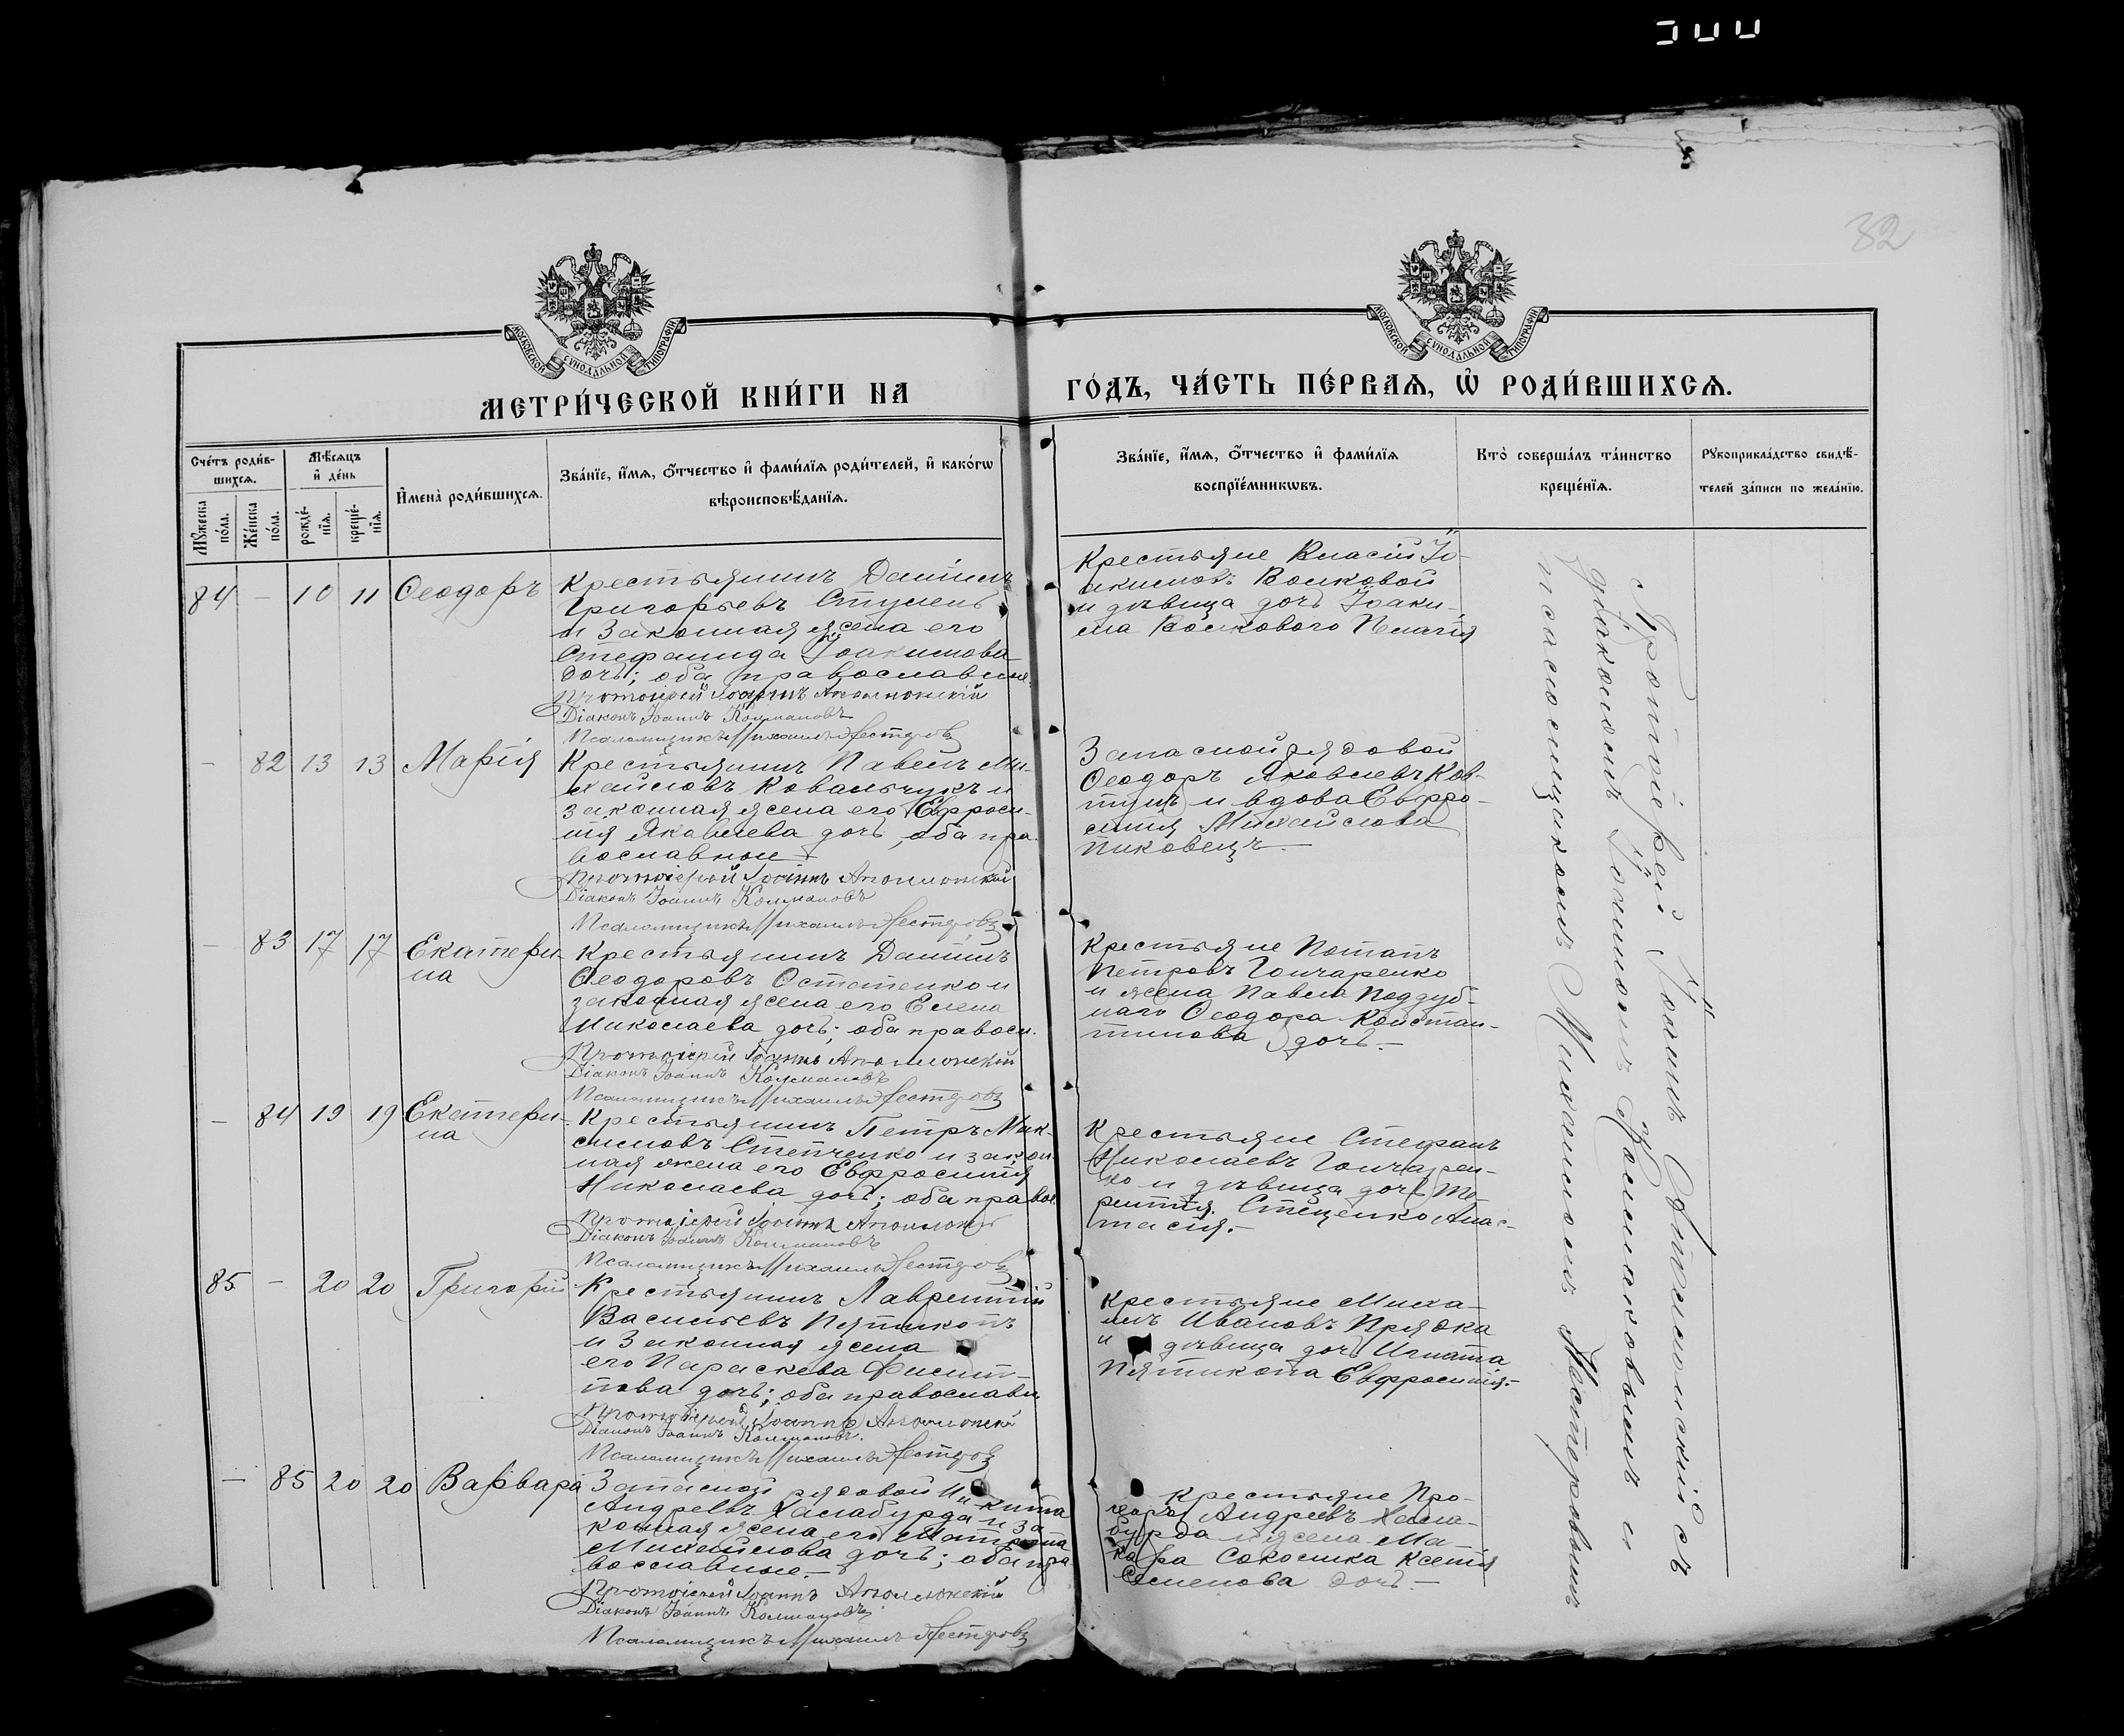 82
МОСКОВСКОЙ СѴНОДАЛЬНОЙ ТИПОГРАФІИ
МОСКОВСКОЙ СѴНОДАЛЬНОЙ ТИПОГРАФІИ
МЕТРИ́ЧЕСКОЙ КНИ́ГИ НА
ГО́ДЪ, ЧА́СТЬ ПЕ́РВАѦ, Ѡ҆ РОДИ́ВШИХСѦ.
Сче́тъ роди́в-
шихсѧ.
Мꙋ́жеска по́ла.
Же́нска по́ла.
Мѣ́сѧцъ
и҆ де́нь
рожде́-
нїѧ.
креще́-
нїѧ.
И҆мена̀ роди́вшихсѧ.
Зва́нїе, и҆́мѧ, ѻ҆́тчество и҆ фами́лїѧ роди́телей, и҆ како́гѡ
вѣроисповѣ́данїѧ.
Зва́нїе, и҆́мѧ, ѻ҆́тчество и҆ фами́лїѧ
воспрїе́мникѡвъ.
Кто̀ соверша́лъ та́инство
креще́нїѧ.
Рꙋкоприкла́дство свидѣ́-
телей за́писи по жела́нїю.
84 — 10 11 Ѳеодоръ
Крестьянинъ Даніилъ
Григорьевъ Ступень
и законная жена его
Стефанида Іоакимова
дочь; оба православные.
Протоіерей Іоаннъ Аполлонскій
Діаконъ Іоаннъ Колмаковъ
Псаломщикъ Михаилъ Нестеровъ
Крестьяне Власій Іо-
акимовъ Волковой
и дѣвица дочь Іоаки-
ма Волкового Пелагія
— 82 13 13 Марія
Крестьянинъ Павелъ Ми-
хайловъ Ковальчукъ и
законная жена его Евфроси-
нія Яковлева дочь, оба пра-
вославные
Протоіерей Іоаннъ Аполлонскій
Діаконъ Іоаннъ Колмаковъ
Псаломщикъ Михаилъ Нестеровъ
Запасной рядовой
Ѳеодоръ Яковлевъ Ков-
тунъ и вдова Евфро-
синія Михайлова
Пиковецъ
— 83 17 17 Екатери-
на
Крестьянинъ Даніилъ
Ѳеодоровъ Остапенко и
законная жена его Елена
Николаева дочь; оба правосл.
Протоіерей Іоаннъ Аполлонскій
Діаконъ Іоаннъ Колмаковъ
Псаломщикъ Михаилъ Нестеровъ
Крестьяне Потапъ
Петровъ Гончаренко
и жена Павла Поддуб-
наго Ѳеодора Констан-
тинова дочь.—
— 84 19 19 Екатери-
на
Крестьянинъ Петръ Мак-
симовъ Степченко и закон-
ная жена его Евфросинія
Николаева дочь; оба правос.
Протоіерей Іоаннъ Аполлонскій
Діаконъ Іоаннъ Колмаковъ
Псаломщикъ Михаилъ Нестеровъ
Крестьяне Стефанъ
Николаевъ Гончарен-
ко и дѣвица дочь
Анас-
тасія.—
85 — 20 20 Григорій
Крестьянинъ Лаврентій
Васильевъ Пятикопъ
и законная жена
его Параскева Филип-
пова дочь; оба православн.
Протоіерей Іоаннъ Аполлонскій
Діаконъ Іоаннъ Колмаковъ.
Псаломщикъ Михаилъ Нестеровъ
Крестьяне Миха-
илъ Ивановъ Прядка
и дѣвица дочь Игната
Пятикопа Евфросинія.—
— 85 20 20 Варвара
Запасной рядовой Никита
Андреевъ Халабурда и за-
конная жена его Матрона
Михайлова дочь; оба пра-
вославные.—
Протоіерей Іоаннъ Аполлонскій
Діаконъ Іоаннъ Колмаковъ
Псаломщикъ Михаилъ Нестеровъ
Крестьяне Про-
хоръ Андреевъ Хала-
бурда и жена Ма-
кара Соколика Ксенія
Семенова дочь.—
Протоіерей Іоаннъ Аполлонскій съ
діакономъ Іоанномъ Колмаковымъ и
псаломщикомъ Михаиломъ Нестеровымъ